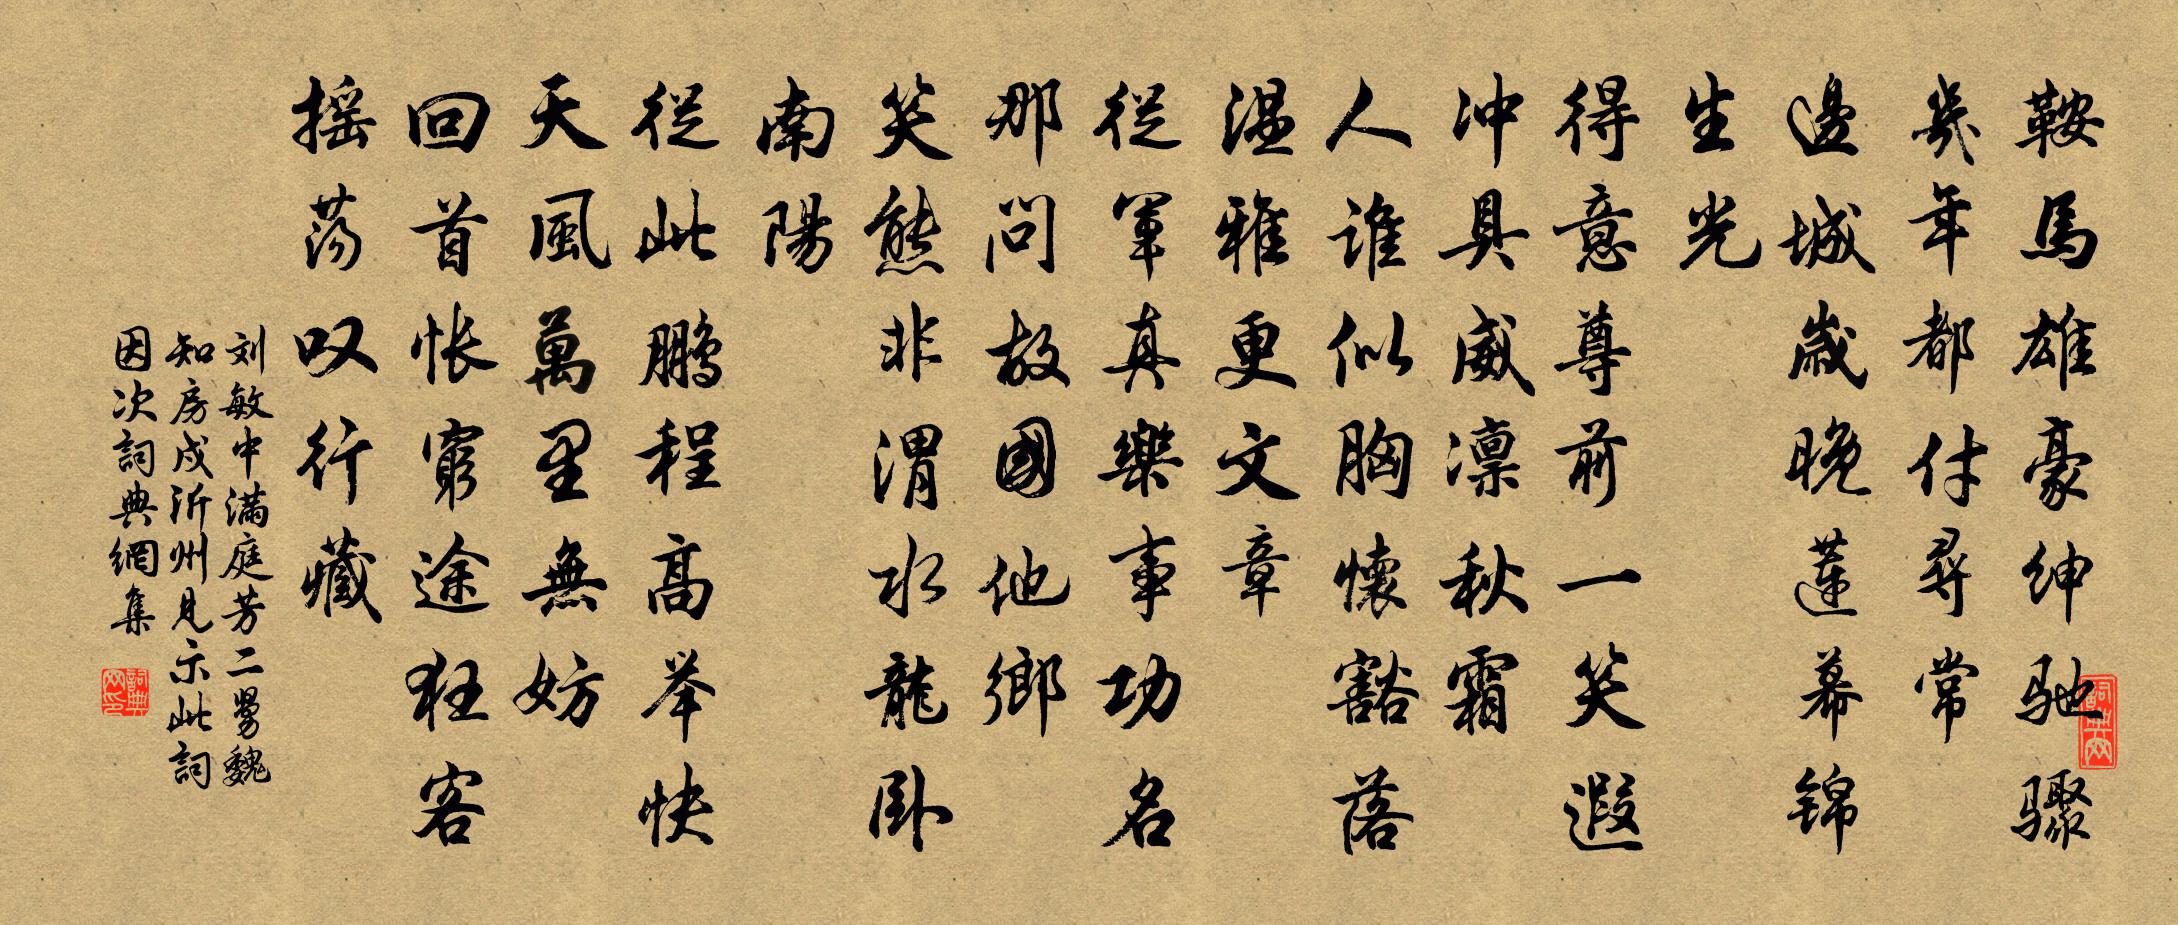 鞍馬雄豪紳驰骤
幾年都付尋常
邊城歲晚蓮幕锦
生光
得意尊前一笑遐
冲具威凛秋霜
人谁似胸懷豁落
温雅更文章
從軍真樂事功名
那問故國他鄉
笑熊非渭水龍卧
南陽
從此鵬程高举快
天風萬里無妨
回首怅窮途狂客
摇荡叹行藏
刘敏中满庭芳二舅魏
知房戍沂州見示此詞
因次詞典網集
詞典网
詞典网印